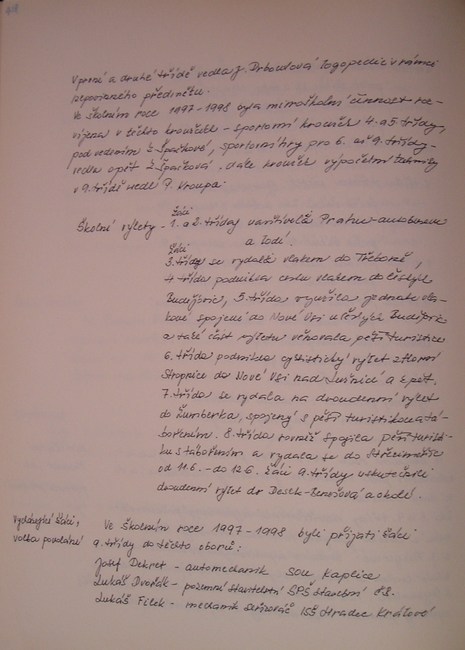 V prvné a druhé třídě vedla J. Drboutová logopedii v rámci
nepovinného předmětu.
Ve školním roce 1997-1998 byla mimoškolní činnost roz-
víjena v těchto kroužcích - sportovní kroužek 4. a 5 třídy,
pod vedením Z. Špačkové, sportovní hry pro 6. až 9. třídy-
vedla opět Z. Špačková. Dále kroužek výpočetní techniky
v 9. třídě vedl P. Kroupa.
Školní výlety - žáci
1. a 2. třídy navštívili Prahu - autobusem
a lodí.
žáci
3. třídy se vydali vlakem do Třeboně,
4 třída podnikla cestu vlakem do Českých
Budějovic, 5. třída využila jednak vla-
kové spojení do Nové Vsi u Českých Budějovic
a také část výletu věnovala pěší turistice
6. třída podnikla cyklistický výlet z Horní
Stropnice do Nové Vsi nad Lužnicí a zpět.
7. třída se vydala na dvoudenní výlet
do Žumberka, spojený s pěší turistikou a tá-
bořením. 8. třída rovněž spojila pěší turisti-
ku s tábořením a vydala se do
od 11.6. - do 12.6. Žáci 9. třídy uskutečnili
dvoudenní výlet do Desek-Benešova a okolí.
Vycházející žáci,
volba povolání
Ve školním roce 1997-1998 byli přijati žáci
9. třídy do těchto oborů:
Josef Dekret - automechanik SOU Kaplice
Lukáš Dvořák - pozemní stavitelství SPŠ stavební Č.B.
Lukáš Filek - mechanik seřizovač ISŠ Hradec Králové